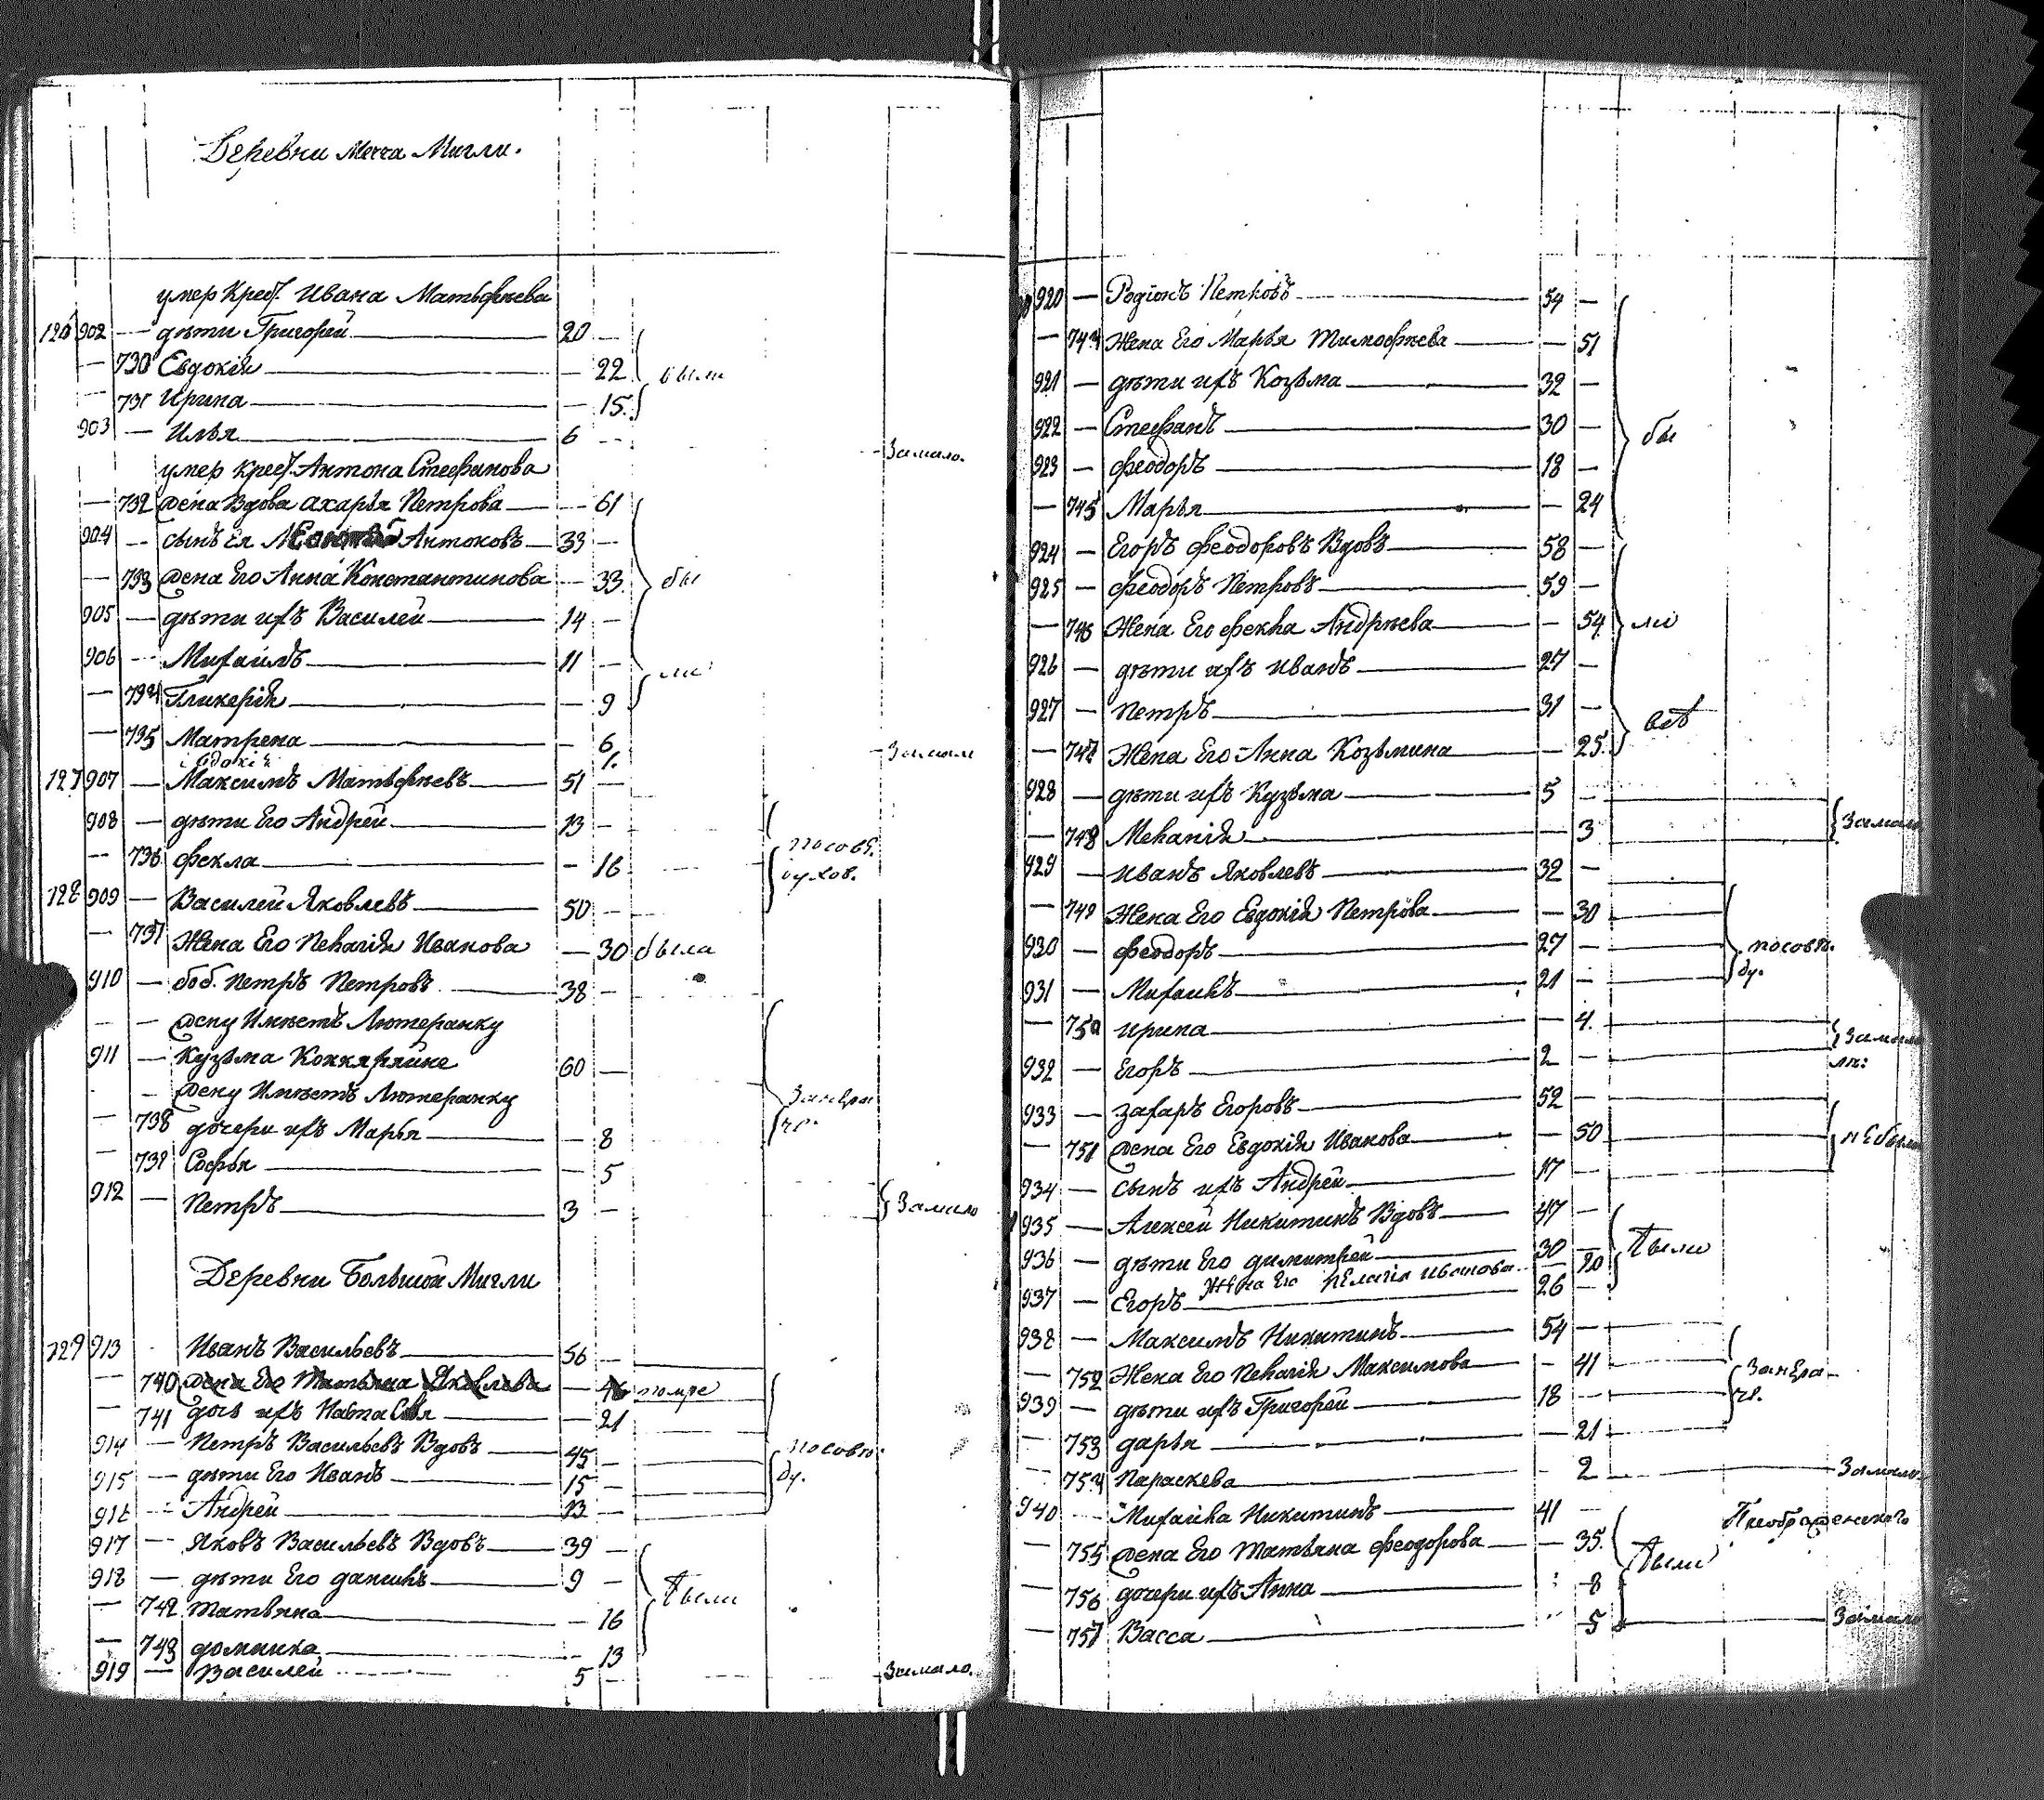 Деревни Мегга Мигли.
умер Крест. Ивана Матьфѣева
126 902 — дѣти Григорей — 20 —
— 730 Евдокія — — 22 были
— 731 Ирина — — 15
903 — Илья — 6 — Замало.
умер крест. Антона Стефанова
— 732 жена Вдова Дарья Петрова — — 61
904 — сынъ Ея Антоновъ — 33 —
— 733 жена Его Анна Константинова — — 33 бы
905 — дѣти ихъ Василей — 14 —
906 — Михаилъ — 11 — ли
— 734 Гликерія — — 9
— 735 Матрена — — 6 Замало
Евдокія 1.
127 907 — Максимъ Матьфѣевъ — 51 —
908 — дѣти Его Андрей — 13 —
— 736 Фекла — — 16 посовѣ. духов.
128 909 — Василей Яковлевъ — 50 —
— 737 Жена Его Пелагія Иванова — 30 была
910 — боб. Петръ Петровъ — 38 —
— — жену Имѣетъ Лютеранку
911 — Кузьма 60 —
— жену Имѣетъ Лютеранку
— 738 дочери ихъ Марья — — 8
— 739 Софья — — 5
912 — Петръ — 3 — Замало
Деревни Большой Мигли
129 913 Иванъ Васильевъ — 56 —
— 740 жена Его Татьяна Яковлева — 46 помре
— 741 дочь ихъ Настасья — — 21
914 — Петръ Васильевъ Вдовъ — 45 — посовѣ: ду.
915 — дѣти Его Иванъ — 15 —
916 — Андрей — 13 —
917 — Яковъ Васильевъ Вдовъ — 39 —
918 — дѣти Его Данилъ — 9 — были
— 742 Татьяна — — 16
— 743 Домника — — 13
919 — Василей 5 — Замало.
920 — Родіонъ Петровъ 54 —
— 744 Жена Его Марья Тимофѣева — — 51
921 — дѣти ихъ Козьма — 32 —
922 — Стефанъ — 30 — бы
923 — Феодоръ — 18 —
— 745 Марья — — 24
924 — Егоръ Феодоровъ Вдовъ — 58 —
925 — Феодоръ Петровъ — 59 —
— 746 Жена Его Фекла Андрѣева — — 54 ли
926 — дѣти ихъ Иванъ — 27 —
927 — Петръ — 31 — всѣ
— 747 Жена Его Анна Козьмина — — 25
928 — дѣти ихъ Кузьма — 5 —
— 748 Меланія — — 3 Замало
929 — Иванъ Яковлевъ — 32 —
— 749 Жена Его Евдокія Петрова — — 30
930 — Феодоръ — 27 — посовѣ. ду.
931 — Михаилъ — 21 —
— 750 Ирина — — 4
932 — Егоръ — 2 —
933 — Захаръ Егоровъ — 52 —
— 751 жена Его Евдокія Иванова — — 50 небыли
934 — сынъ ихъ Андрей — 17 —
935 — Алексей Никитинъ Вдовъ — 47 —
936 — дѣти Его Димитрей — 30 — были
Жена Его Пелагія Иванова — 20
937 — Егоръ — 26 —
938 — Максимъ Никитинъ — 54 —
— 752 Жена Его Пелагія Максимова — 41
939 — дѣти ихъ Григорей — 18 —
— 753 Дарья — — 21
— 754 Параскева — 2 — Замало
940 — Михаила Никитинъ — 41 — Преображенскаго
— 755 жена Его Татьяна Феодорова — 35 были
— 756 дочери ихъ Анна — 8
— 757 Васса — 5 — Замало